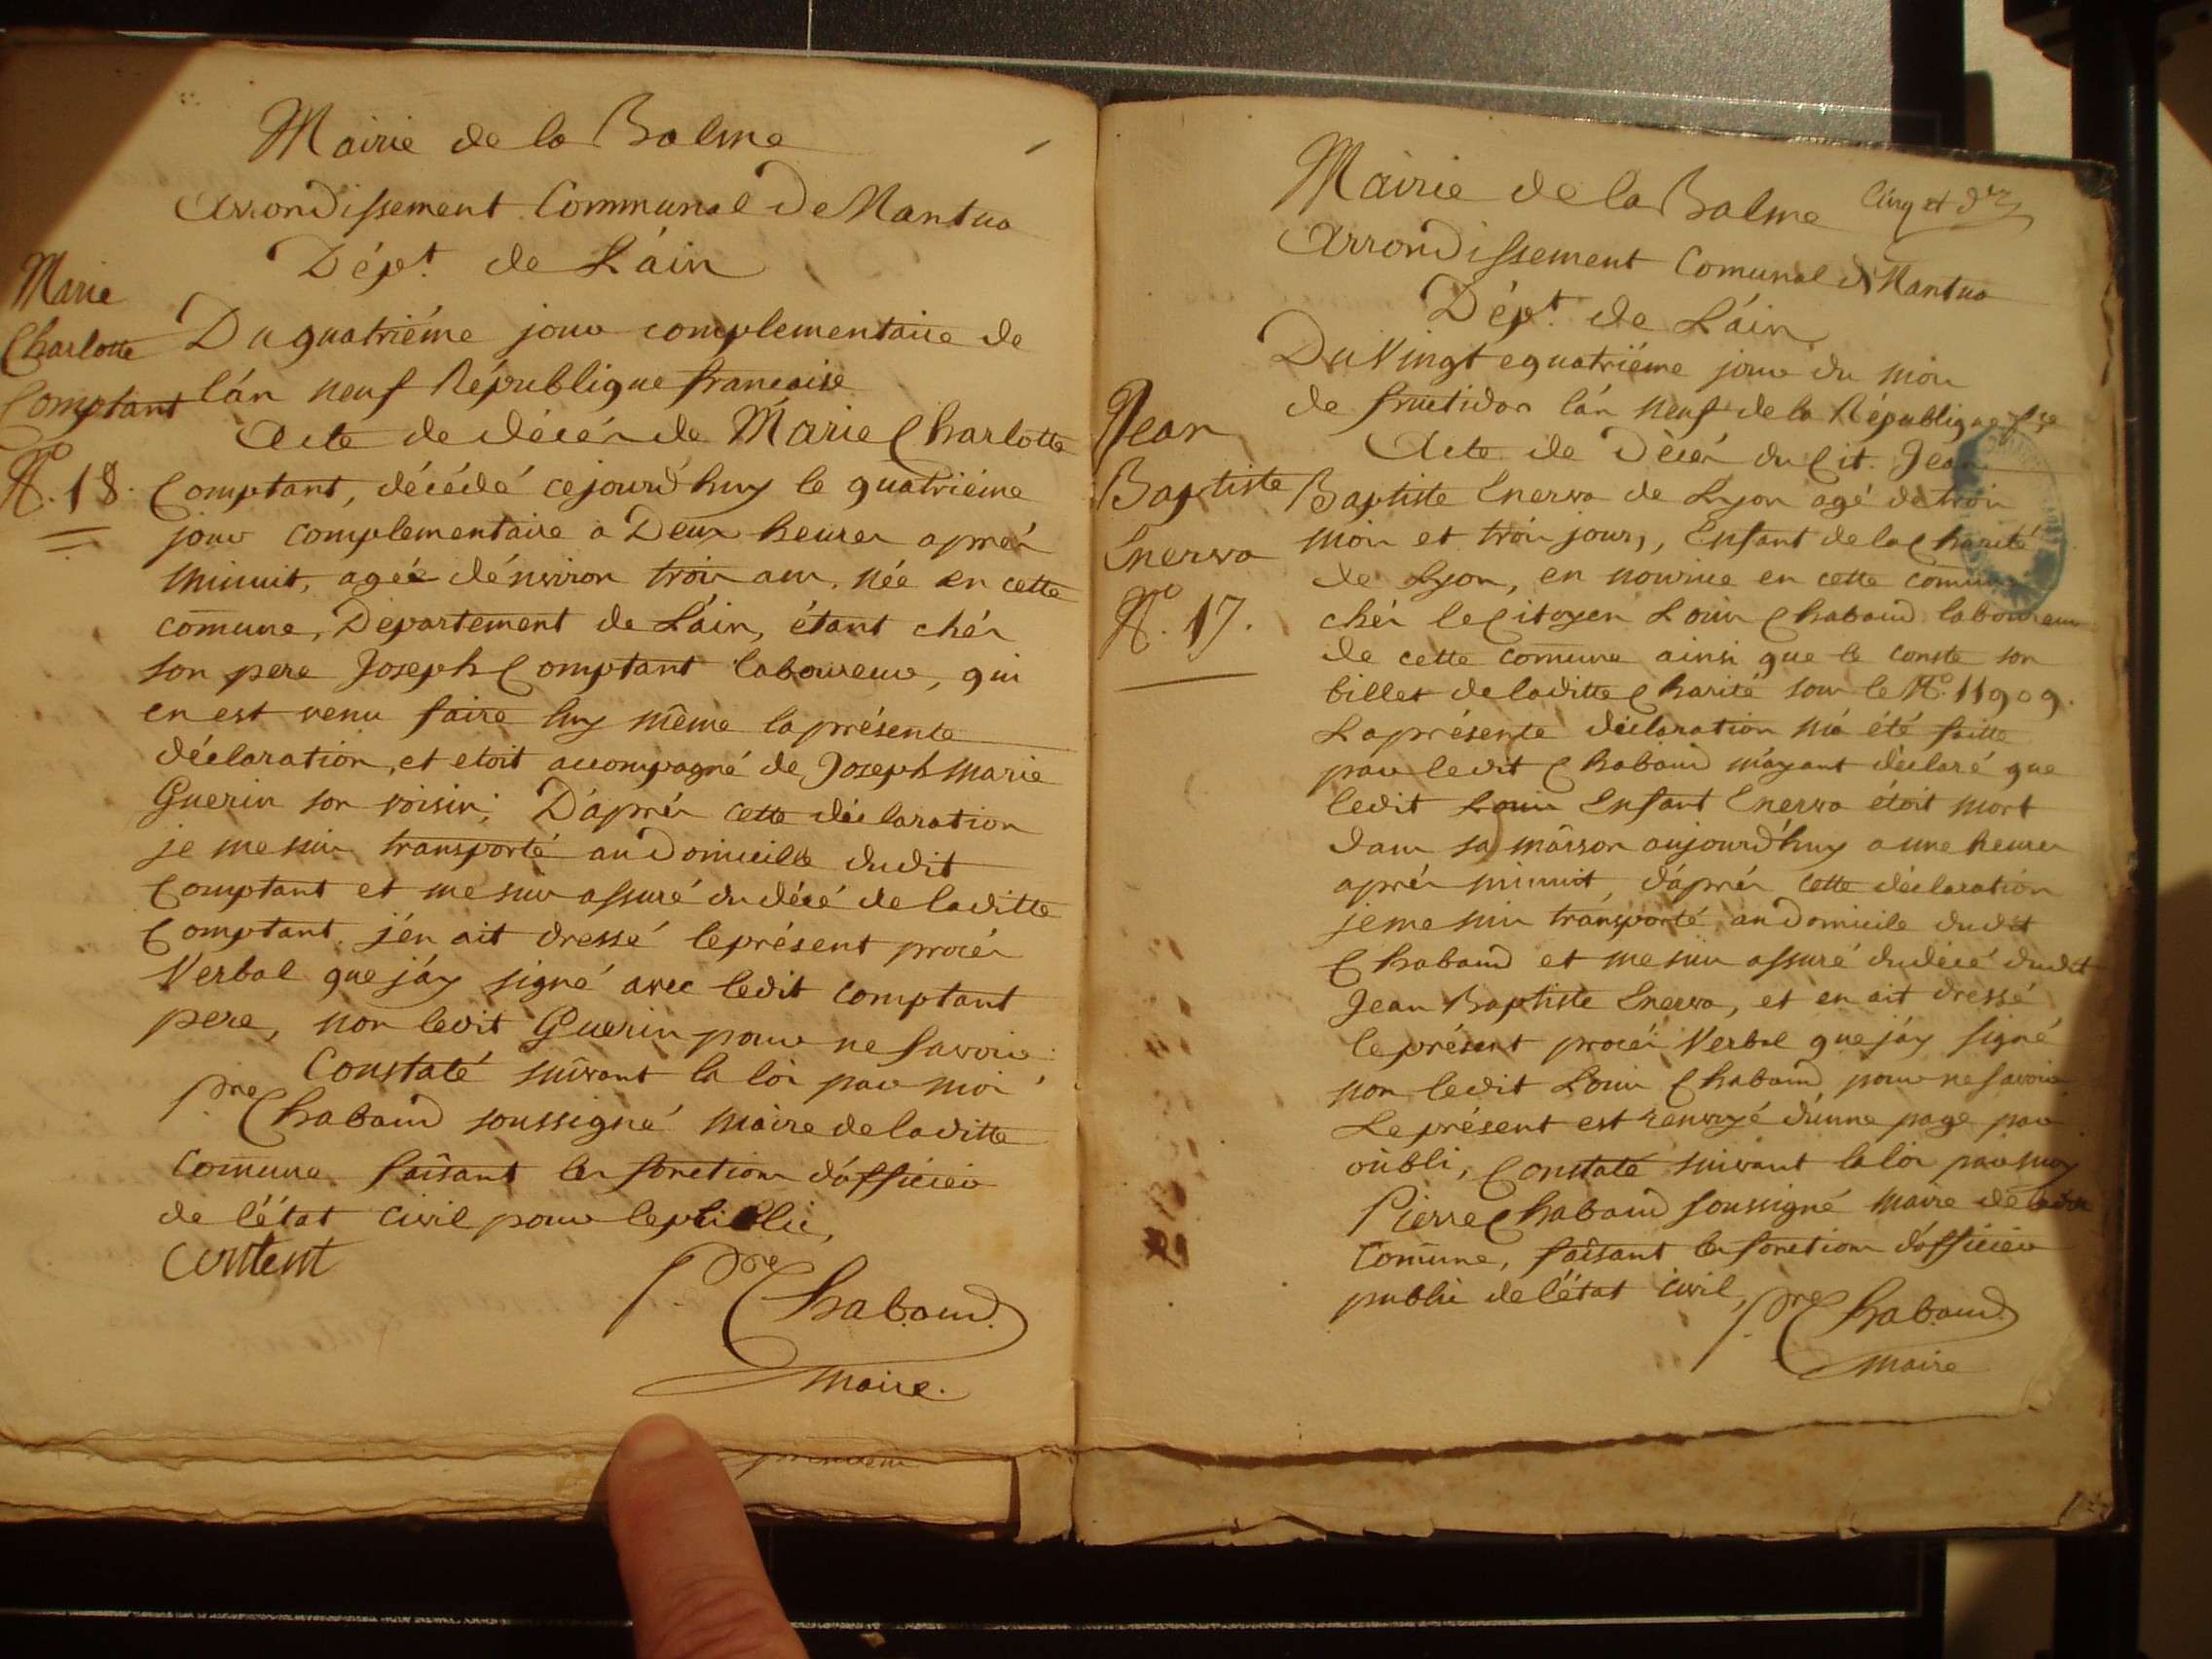 Mairie de la Balme
Arrondissement Communal De Mantua
Dép.t de L'áin
Marie
Charlotte
Comptant
N.o 18
Du quatriéme jour complementaire de
l'án neuf République francaise
Acte de décés de Marie Charlotte
Comptant, décédé cejourd'huy le quatriéme
jour complementaire a Deux heures aprés
minuit, agée d'énviron trois ans, née en cette
comune, Departement de L'áin, étant chés
son pere Joseph Comptant laboureur, qui
en est venu faire luy même la présente
déclaration, et etoit accompagné de Joseph Marie
Guerin son voisin; D'aprés cette déclaration
je me suis transporté au Domicille dudit
Comptant et me suis assuré du décé de laditte
Comptant j'én ait dressé le présent procés
Verbal que j'áy signé avec ledit comptant
pere, non ledit Guerin pour ne Savoir.
Constaté suivant la loi par moi
P.re Chabaud soussigné maire de laditte
Comune faisant les fonctions d'officier
de l'état civil pour le public,
Content
P.re Chabaud.
Maire.
Mairie de la Balme
Cinq et
Arrondissement Comunal d Mantua
Dép.t de L'áin
Jean
Baptiste
Enerva
N.o 17.
Du Vingt e quatriéme jour du mois
de fructidor l'án neuf de la République fse
Acte de Décés du Cit. Jean
Baptiste Enerva de Lyon agé de trois
mois et trois jours, Enfant de la Charité
de Lyon, en nourice en cette comune
chés le Citoyen Louis Chabaud laboureur
de cette comune ainsi que le conste son
billet de laditte Charité sous le N.o 11909.
La présente déclaration m'á été faitte
par ledit Chabaud m'áyant déclaré que
ledit Louis Enfant Enerva étoit mort
dans sa maison aujourd'huy a une heures
aprés minuit, d'áprés cette déclaration
je me suis transporté au Domicile dudit
Chabaud et me suis assuré du décé dudit
Jean Baptiste Enerva, et en ait dressé
le présent procés Verbal que j'áy signé
non ledit Louis Chabaud pour ne Savoir
Le présent est renvoyé d'únne page par
oùbli, Constaté suivant la loi par moy
Pierre Chabaud soussigné maire de
Comune, faisant les fonctions d'officier
public de l'état civil,
P.re Chabaud
Maire